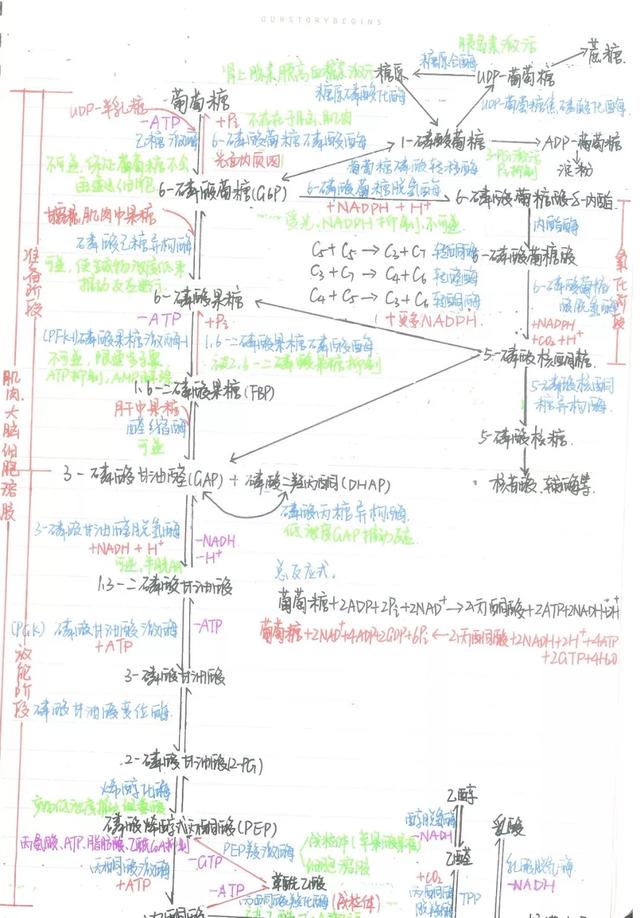 OURSTORYBEGINS
胰岛素激活
肾上腺素胰高血糖素激活
糖原
糖原合酶
UDP-葡萄糖
蔗糖
糖原磷酸化酶
UDP-葡萄糖焦磷酸化酶
葡萄糖
UDP-半乳糖
-ATP
+Pi
不存在于脑、肌肉
己糖激酶
6-磷酸葡萄糖磷酸酶
1-磷酸葡萄糖
ADP-葡萄糖
光面内质网
葡萄糖磷酸转移酶
Pi抑制
淀粉
6-磷酸葡萄糖(G6P)
6-磷酸葡萄糖脱氢酶
+NADPH + H⁺
6-磷酸葡萄糖酸-δ-内酯
受光、NADPH抑制，不可逆
内酯酶
肌肉中果糖
磷酸己糖异构酶
C5 + C5 → C3 + C7 转酮酶
C3 + C7 → C4 + C6 转醛酶
C4 + C5 → C3 + C6 转酮酶
+更多NADPH
6-磷酸葡萄糖酸
6-磷酸葡萄糖酸脱氢酶
+NADPH
+CO2 + H⁺
氧化阶段
准备阶段
6-磷酸果糖
-ATP
+Pi
(PFK-1)磷酸果糖激酶-1
1,6-二磷酸果糖磷酸酶
不可逆，限速步骤
被2,6-二磷酸果糖抑制
ATP抑制，AMP
5-磷酸核酮糖
1,6-二磷酸果糖(FBP)
5-磷酸核酮糖异构酶
肝中果糖
醛缩酶
可逆
5-磷酸核糖
肌肉、大脑细胞溶胶
3-磷酸甘油醛(GAP) + 磷酸二羟丙酮(DHAP)
核苷酸、辅酶等
磷酸丙糖异构酶
3-磷酸甘油醛脱氢酶
+NADH + H⁺
-NADH
-H⁺
低浓度GAP推动
1,3-二磷酸甘油酸
总反应式：
葡萄糖+2ADP+2Pi+2NAD⁺→2丙酮酸+2ATP+2NADH+2H⁺
葡萄糖+2NAD⁺+4ADP+2GDP+6Pi←2丙酮酸+2NADH+2H⁺+4ATP
+2GTP+4H2O
(PGK) 磷酸甘油酸激酶
+ATP
-ATP
放能阶段
3-磷酸甘油酸
磷酸甘油酸变位酶
2-磷酸甘油酸(2-PG)
烯醇化酶
磷酸烯醇式丙酮酸(PEP)
丙氨酸、ATP、脂肪酸、乙酰CoA抑制
PEP羧激酶
细胞溶胶
-GTP
丙酮酸激酶
+ATP
草酰乙酸
-ATP
丙酮酸羧化酶(线粒体)
丙酮酸
乙醇
醇脱氢酶
-NADH
乙醛
+CO2
TPP
丙酮酸脱羧酶
乳酸
乳酸脱氢酶
-NADH